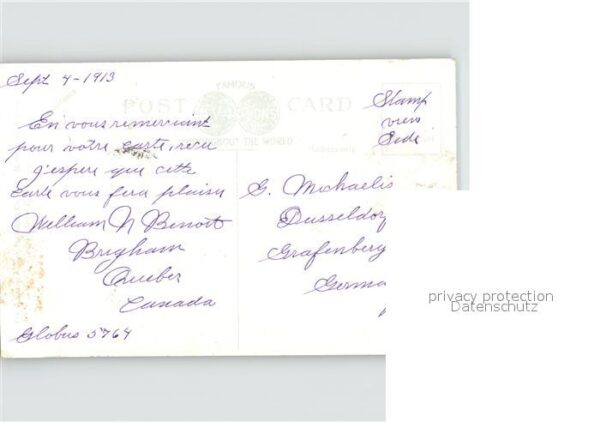 Sept 4-1913
FAMOUS
POST CARD
ABOUT THE WORLD
Stamp
view
Side
En vous remerciant
pour votre carte, recu
j'espere que cette
carte vous fera plaisir
William N Benoit
Brigham
Quebec
Canada
Globus 5764
G. Michaelis
Dusseldorf
Grafenberg
Germa
privacy protection
Datenschutz